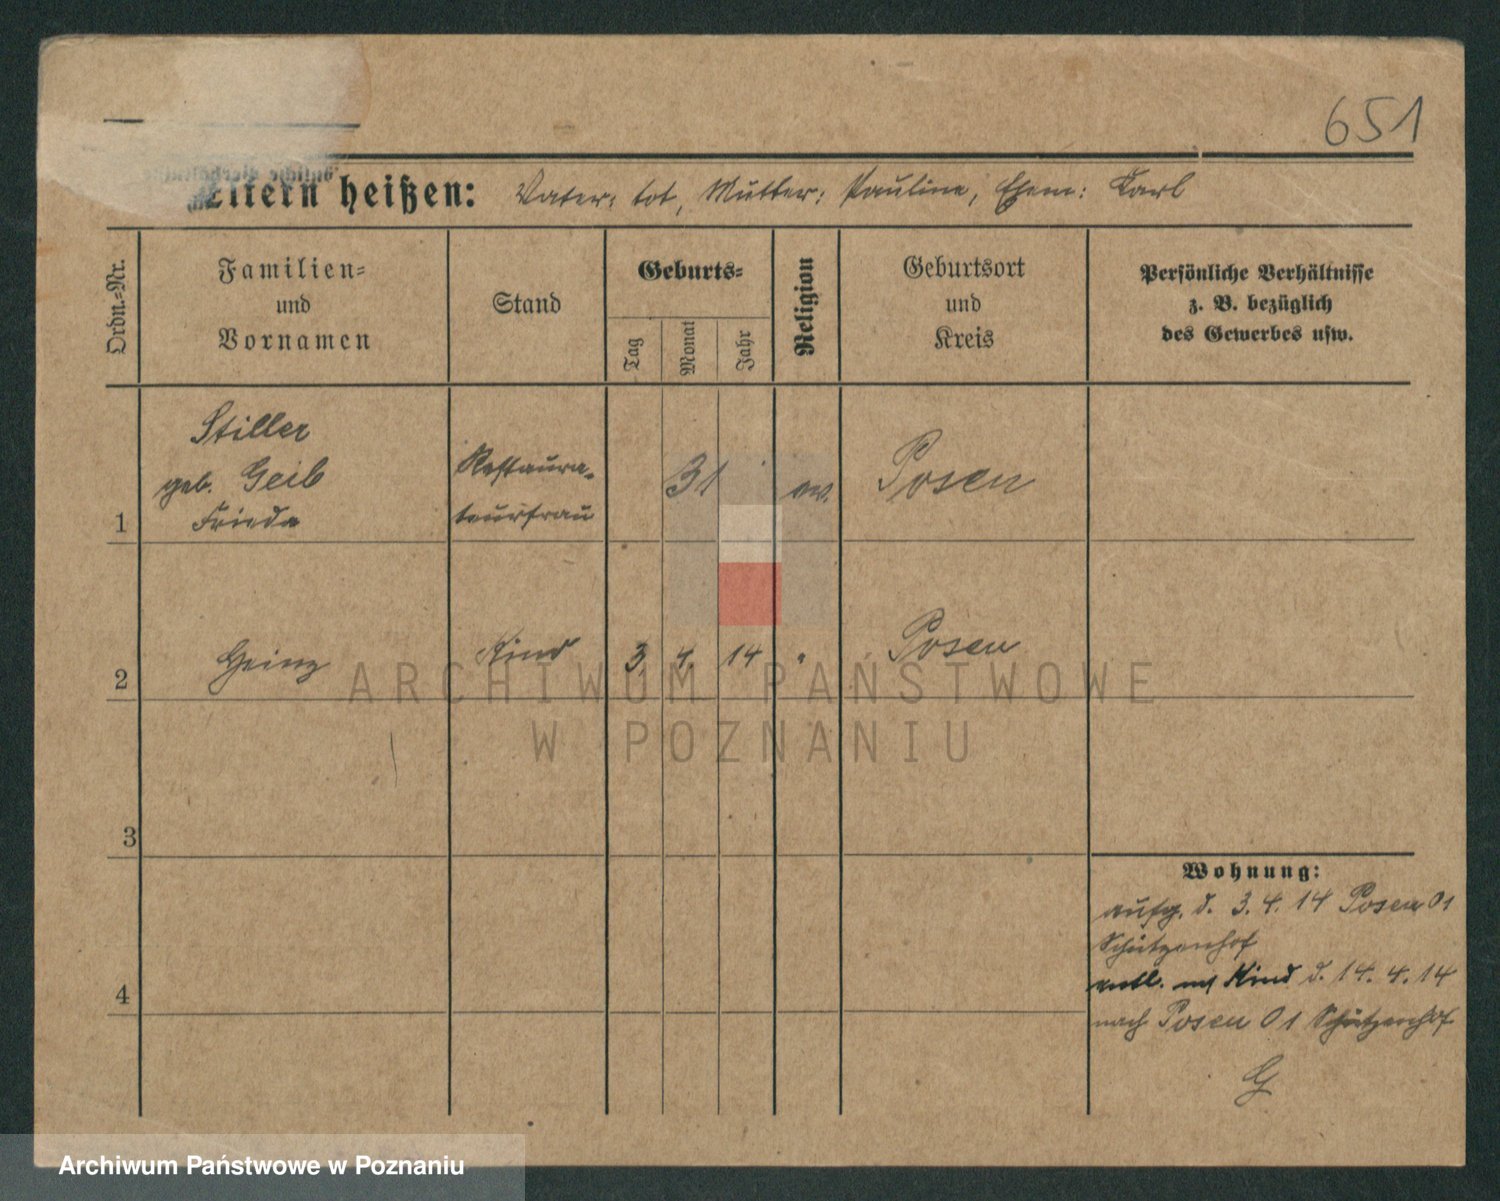 651
Eltern heißen: Vater: tot, Mutter: Pauline, Ehem: Karl
Ordn.-Nr.
Familien-
und
Vornamen
Stand
Geburts-
Tag
Monat
Jahr
Religion
Geburtsort
und
Kreis
Persönliche Verhältnisse
z. B. bezüglich
des Gewerbes usw.
1
Stiller
geb. Geib
Frieda
Restaura-
teurfrau
31
ev.
Posen
2
Heinz
Kind
3. 4. 14
"
Posen
3
4
Wohnung:
aufg. d. 3. 4. 14 Posen O1
Schützenhof
entl. mit Kind d. 14. 4. 14
nach Posen O1 Schützenhof
G
ARCHIWUM PAŃSTWOWE
W POZNANIU
Archiwum Państwowe w Poznaniu